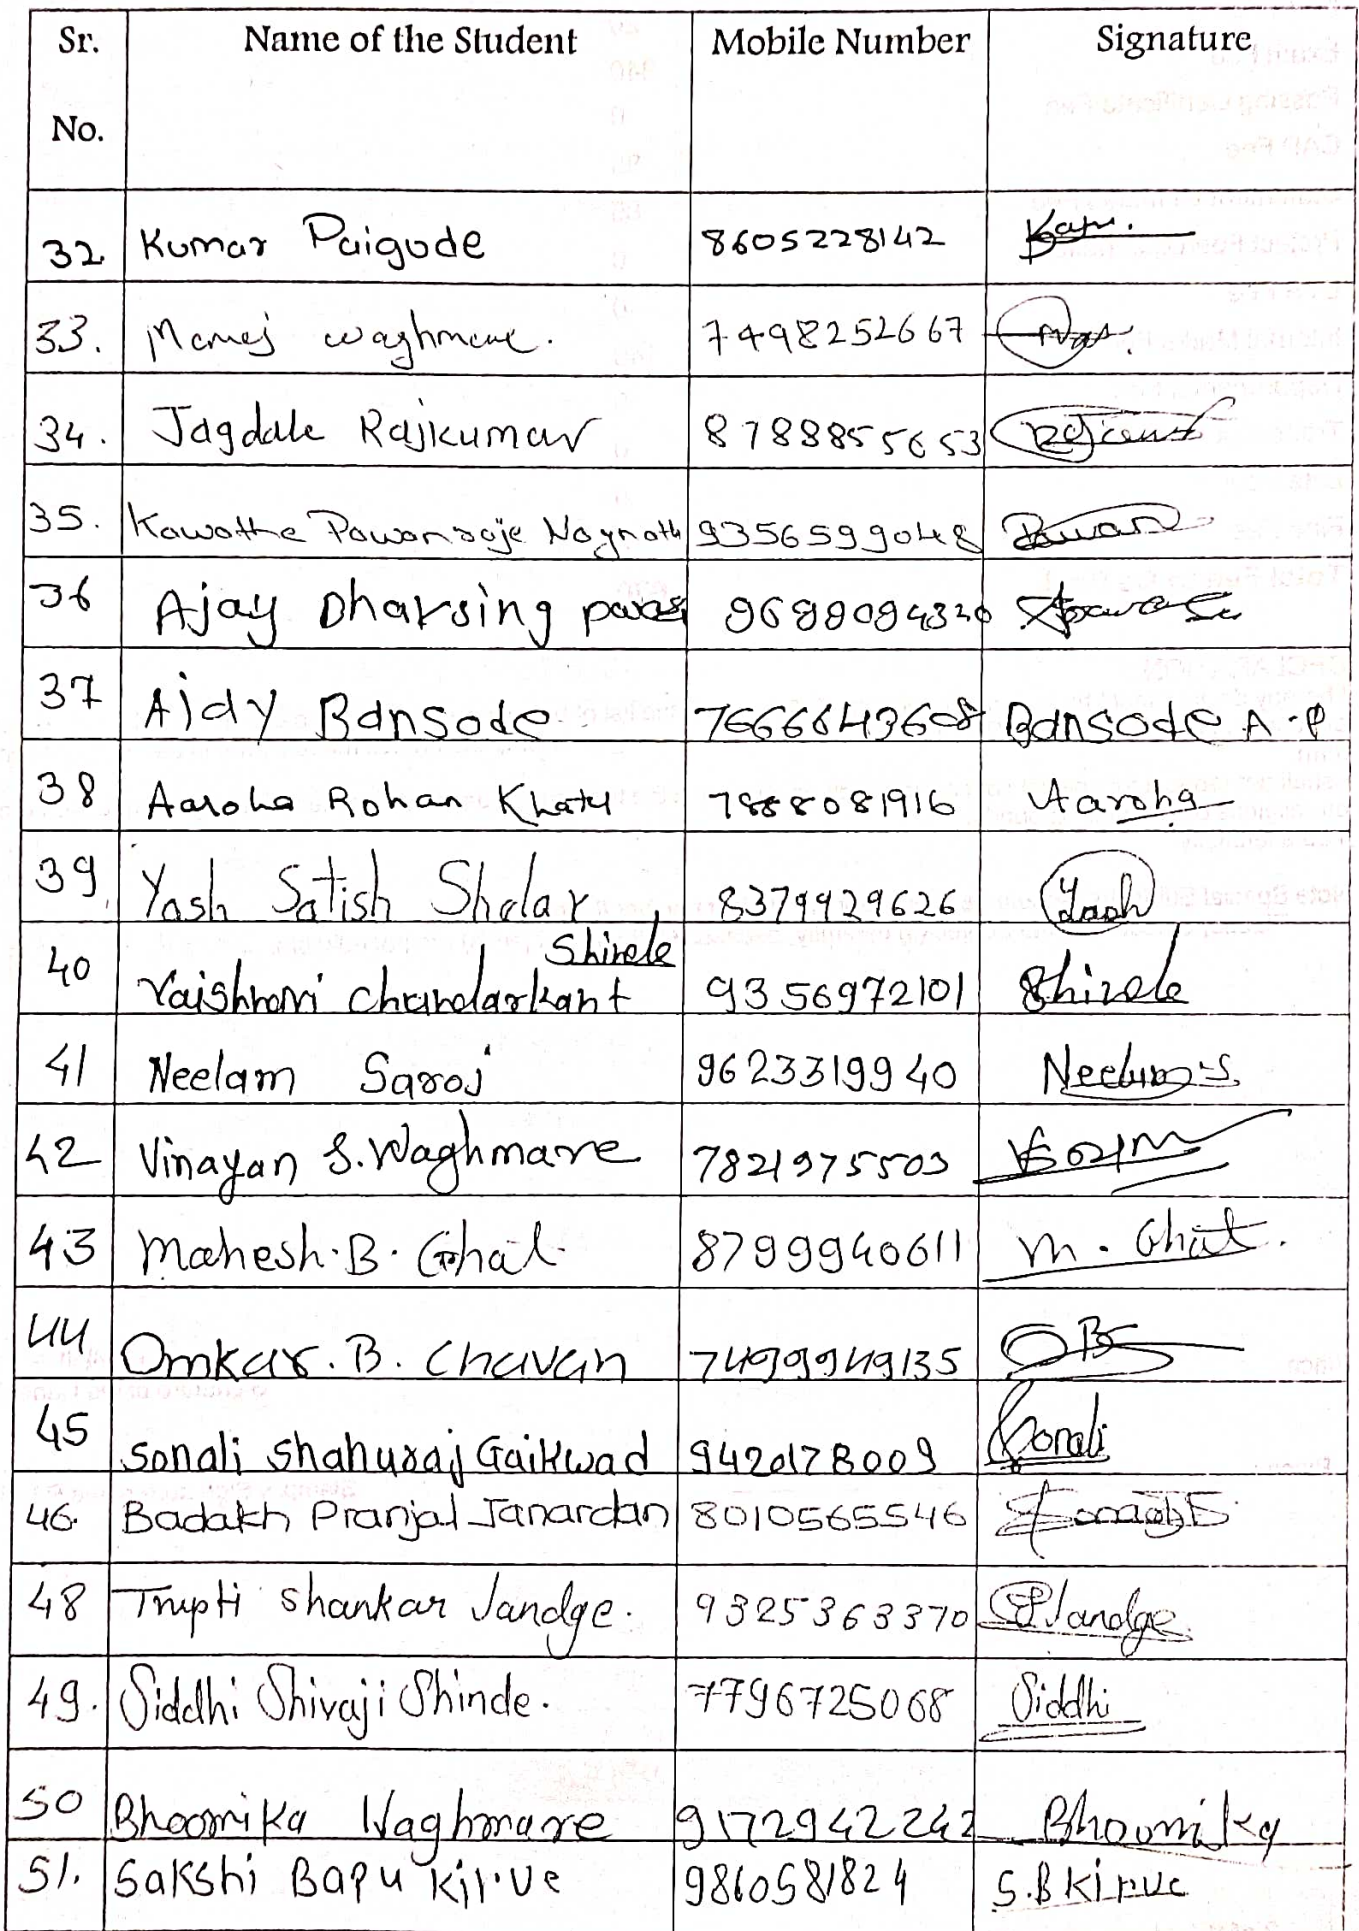 Sr. No. Name of the Student Mobile Number Signature
32 Kumar Paigude 8605228142
33. Manoj waghmare. 7498252667
34. Jagdale Rajkumar 8788855653
35. Kawathe Pawanraje Nagnath 9356599048 Pawan
36 Ajay Dharsing 9699094320
37 Ajay Bansode 7666643608 Bansode A.P
38 Aaroha Rohan Khatu 7888081916 Aaroha
39 Yash Satish Shelar 8379929626 Yash
Shirele
40 Vaishnavi Chandarkant 9356972101 Shirele
41 Neelam Saroj 9623319940 Neelam S.
42 Vinayan S. Waghmare 7821975503
43 Mahesh.B.Ghat 8799940611 M. Ghat.
44 Omkar.B.Chavan 7499949135
45 Sonali Shahuraj Gaikwad 9420178009 Sonali
46. Badakh Pranjal Janardan 8010565546
48 Trupti Shankar Jandge. 9325363370 Jandge
49. Siddhi Shivaji Shinde. 7796725068 Siddhi
50 Bhoomika Waghmare 9172942242 Bhoomika
51. Sakshi Bapu Kirve 9860581824 S.B Kirve